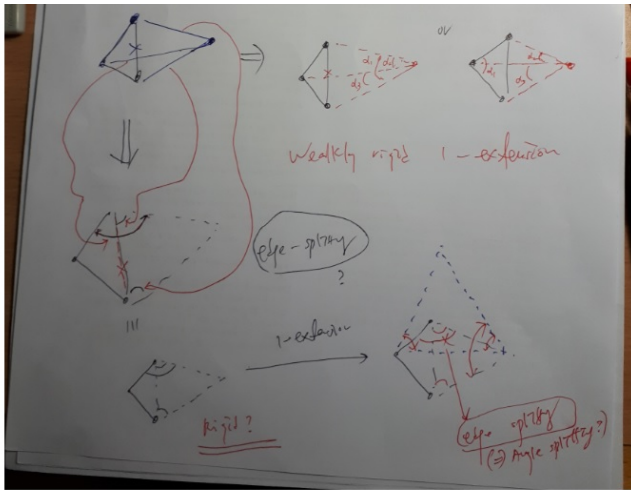 or
α₁
α₂
α₃
α₁
α₂
α₃
Weakly rigid 1-extension
edge-splitting
?
1-extension
Rigid?
edge splitting
(⇒ Angle splitting?)